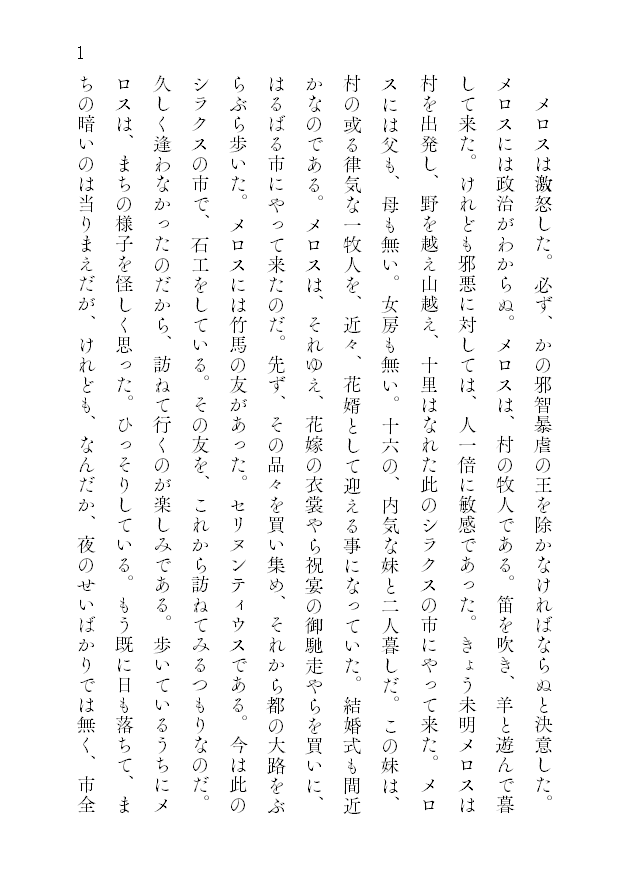 1
メロスは激怒した。必ず、かの邪智暴虐の王を除かなければならぬと決意した。
メロスには政治がわからぬ。メロスは、村の牧人である。笛を吹き、羊と遊んで暮
して来た。けれども邪悪に対しては、人一倍に敏感であった。きょう未明メロスは
村を出発し、野を越え山越え、十里はなれた此のシラクスの市にやって来た。メロ
スには父も、母も無い。女房も無い。十六の、内気な妹と二人暮しだ。この妹は、
村の或る律気な一牧人を、近々、花婿として迎える事になっていた。結婚式も間近
かなのである。メロスは、それゆえ、花嫁の衣裳やら祝宴の御馳走やらを買いに、
はるばる市にやって来たのだ。先ず、その品々を買い集め、それから都の大路をぶ
らぶら歩いた。メロスには竹馬の友があった。セリヌンティウスである。今は此の
シラクスの市で、石工をしている。その友を、これから訪ねてみるつもりなのだ。
久しく逢わなかったのだから、訪ねて行くのが楽しみである。歩いているうちにメ
ロスは、まちの様子を怪しく思った。ひっそりしている。もう既に日も落ちて、ま
ちの暗いのは当りまえだが、けれども、なんだか、夜のせいばかりでは無く、市全